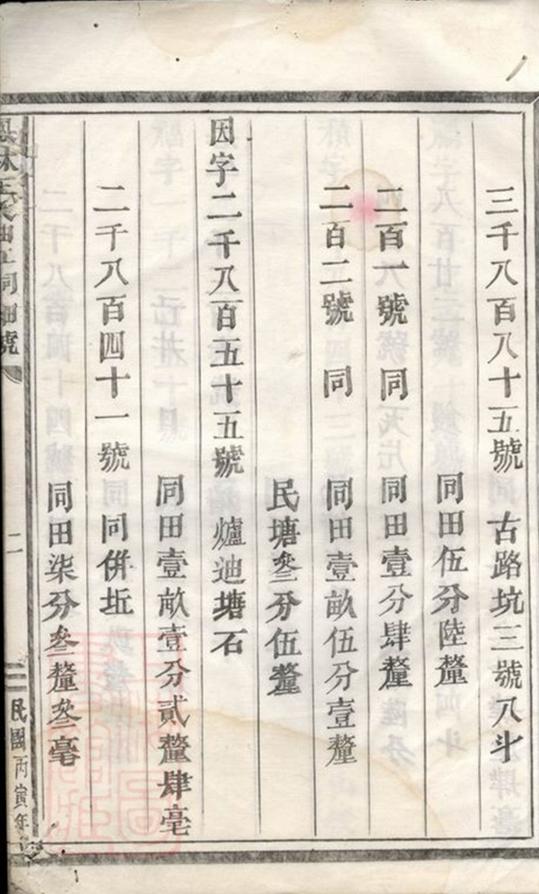 三千八百八十五號 古路坑三號八斗
同田伍分陸釐
二百一號 同 同田壹分肆釐
二百二號 同 同田壹畝伍分壹釐
民塘叁分伍釐
因字二千八百五十五號 爐迪塘石
同田壹畝壹分貳釐肆毫
二千八百四十一號 同併坵
同田柒分叁釐叁毫
二
民國丙寅年